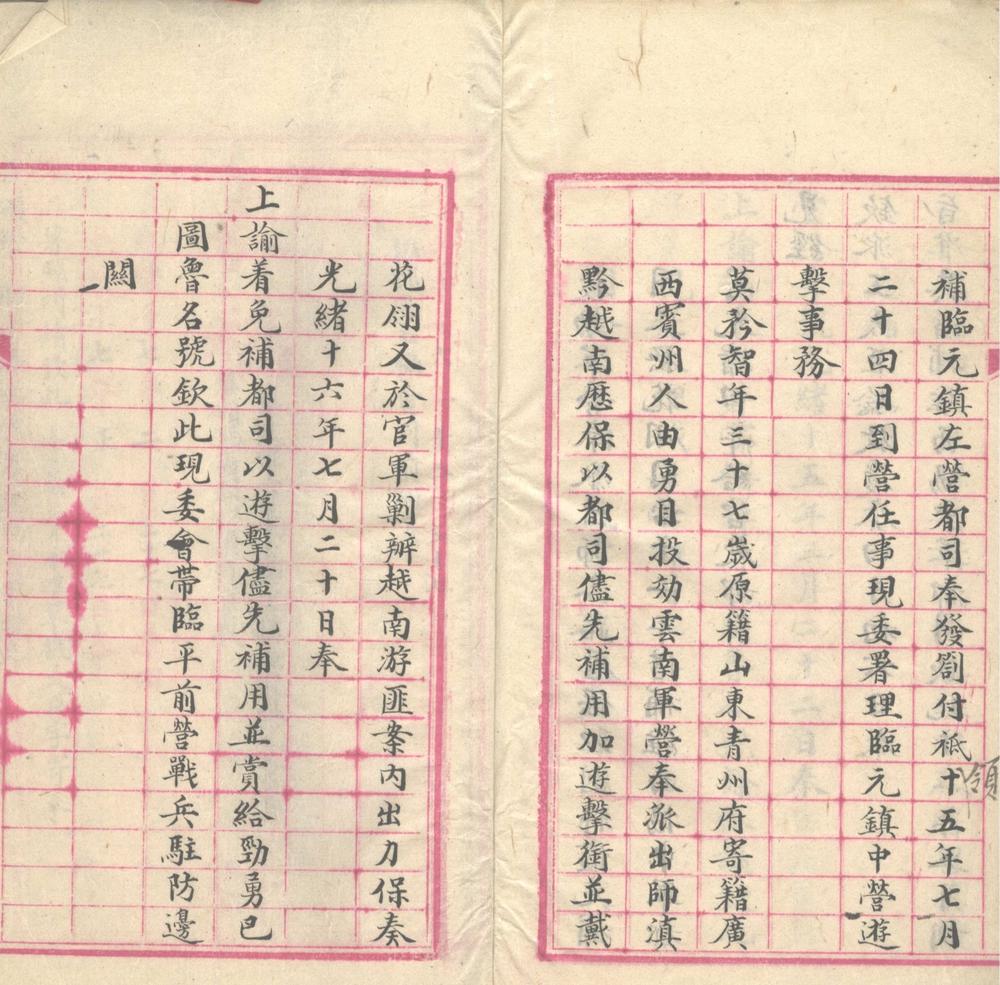 補臨元鎮左營都司奉發劄付祗領十五年七月
二十四日到營任事現委署理臨元鎮中營遊
擊事務
莫矜智年三十七歲原籍山東青州府寄籍廣
西賓州人由勇目投効雲南軍營奉派出師滇
黔越南歷保以都司儘先補用加遊擊銜並戴
花翎又於官軍剿辦越南游匪案內出力保奏
光緒十六年七月二十日奉
上諭着免補都司以遊擊儘先補用並賞給勁勇巴
圖魯名號欽此現委會帶臨平前營戰兵駐防邊
關